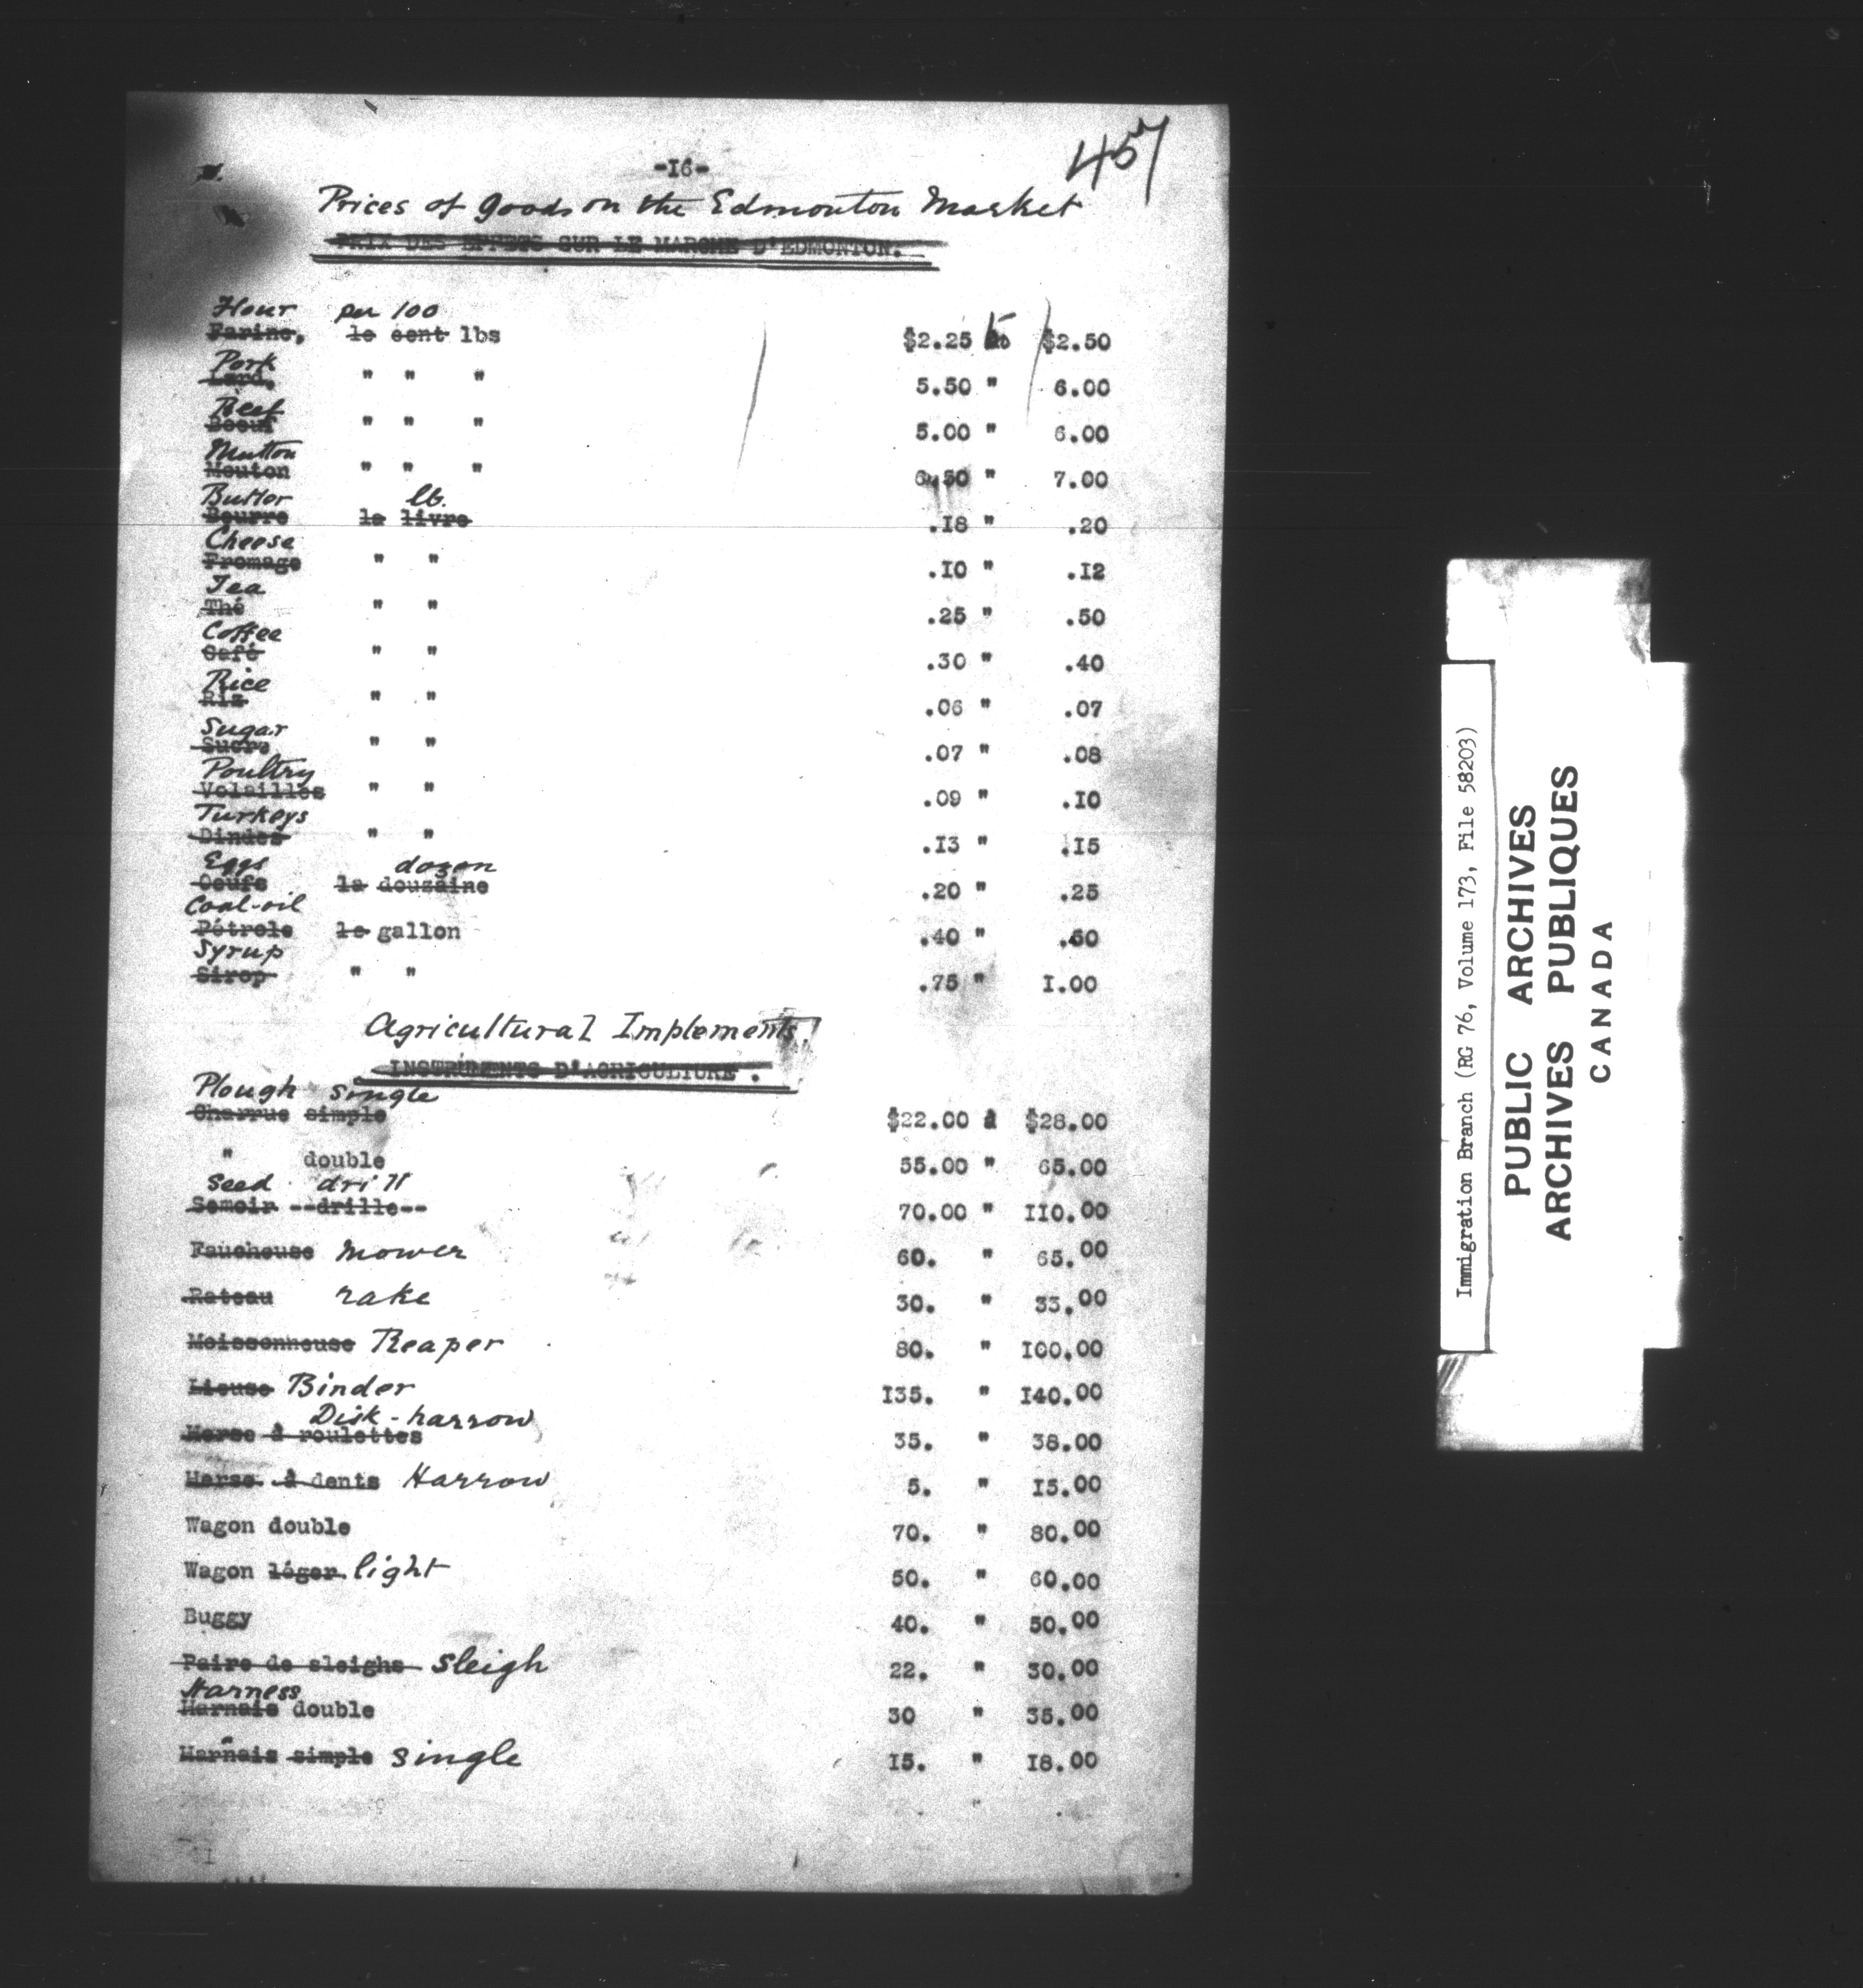 -16-
457
Prices of goods on the Edmonton Market
PRIX DES EFFETS SUR LE MARCHE D'EDMONTON.
Flour per 100
Farine, le cent lbs $2.25 to $2.50
Pork
Lard, " " " 5.50 " 6.00
Beef
Boeuf " " " 5.00 " 6.00
Mutton
Mouton " " " 6.50 " 7.00
Butter lb.
Beurre la livre .18 " .20
Cheese
Fromage " " .10 " .12
Tea
Thé " " .25 " .50
Coffee
Café " " .30 " .40
Rice
Riz " " .06 " .07
Sugar
Sucre " " .07 " .08
Poultry
Volailles " " .09 " .10
Turkeys
Dindes " " .13 " .15
Eggs dozen
Oeufs la douzaine .20 " .25
Coal-oil
Pétrole le gallon .40 " .60
Syrup
Sirop " " .75 " 1.00
Agricultural Implements.
INSTRUMENTS D'AGRICULTURE.
Plough single
Charrue simple $22.00 à $28.00
" double 55.00 " 65.00
Seed drill
Semoir --drille-- 70.00 " 110.00
Faucheuse Mower 60. " 65.00
Rateau rake 30. " 33.00
Moissonneuse Reaper 80. " 100.00
Lieuse Binder 135. " 140.00
Disk-harrow
Herse à roulettes 35. " 38.00
Herse à dents Harrow 5. " 15.00
Wagon double 70. " 80.00
Wagon léger light 50. " 60.00
Buggy 40. " 50.00
Paire de sleighs sleigh 22. " 30.00
Harness
Harnais double 30 " 35.00
Harnais simple single 15. " 18.00
Immigration Branch (RG 76, Volume 173, File 58203)
PUBLIC ARCHIVES
ARCHIVES PUBLIQUES
CANADA